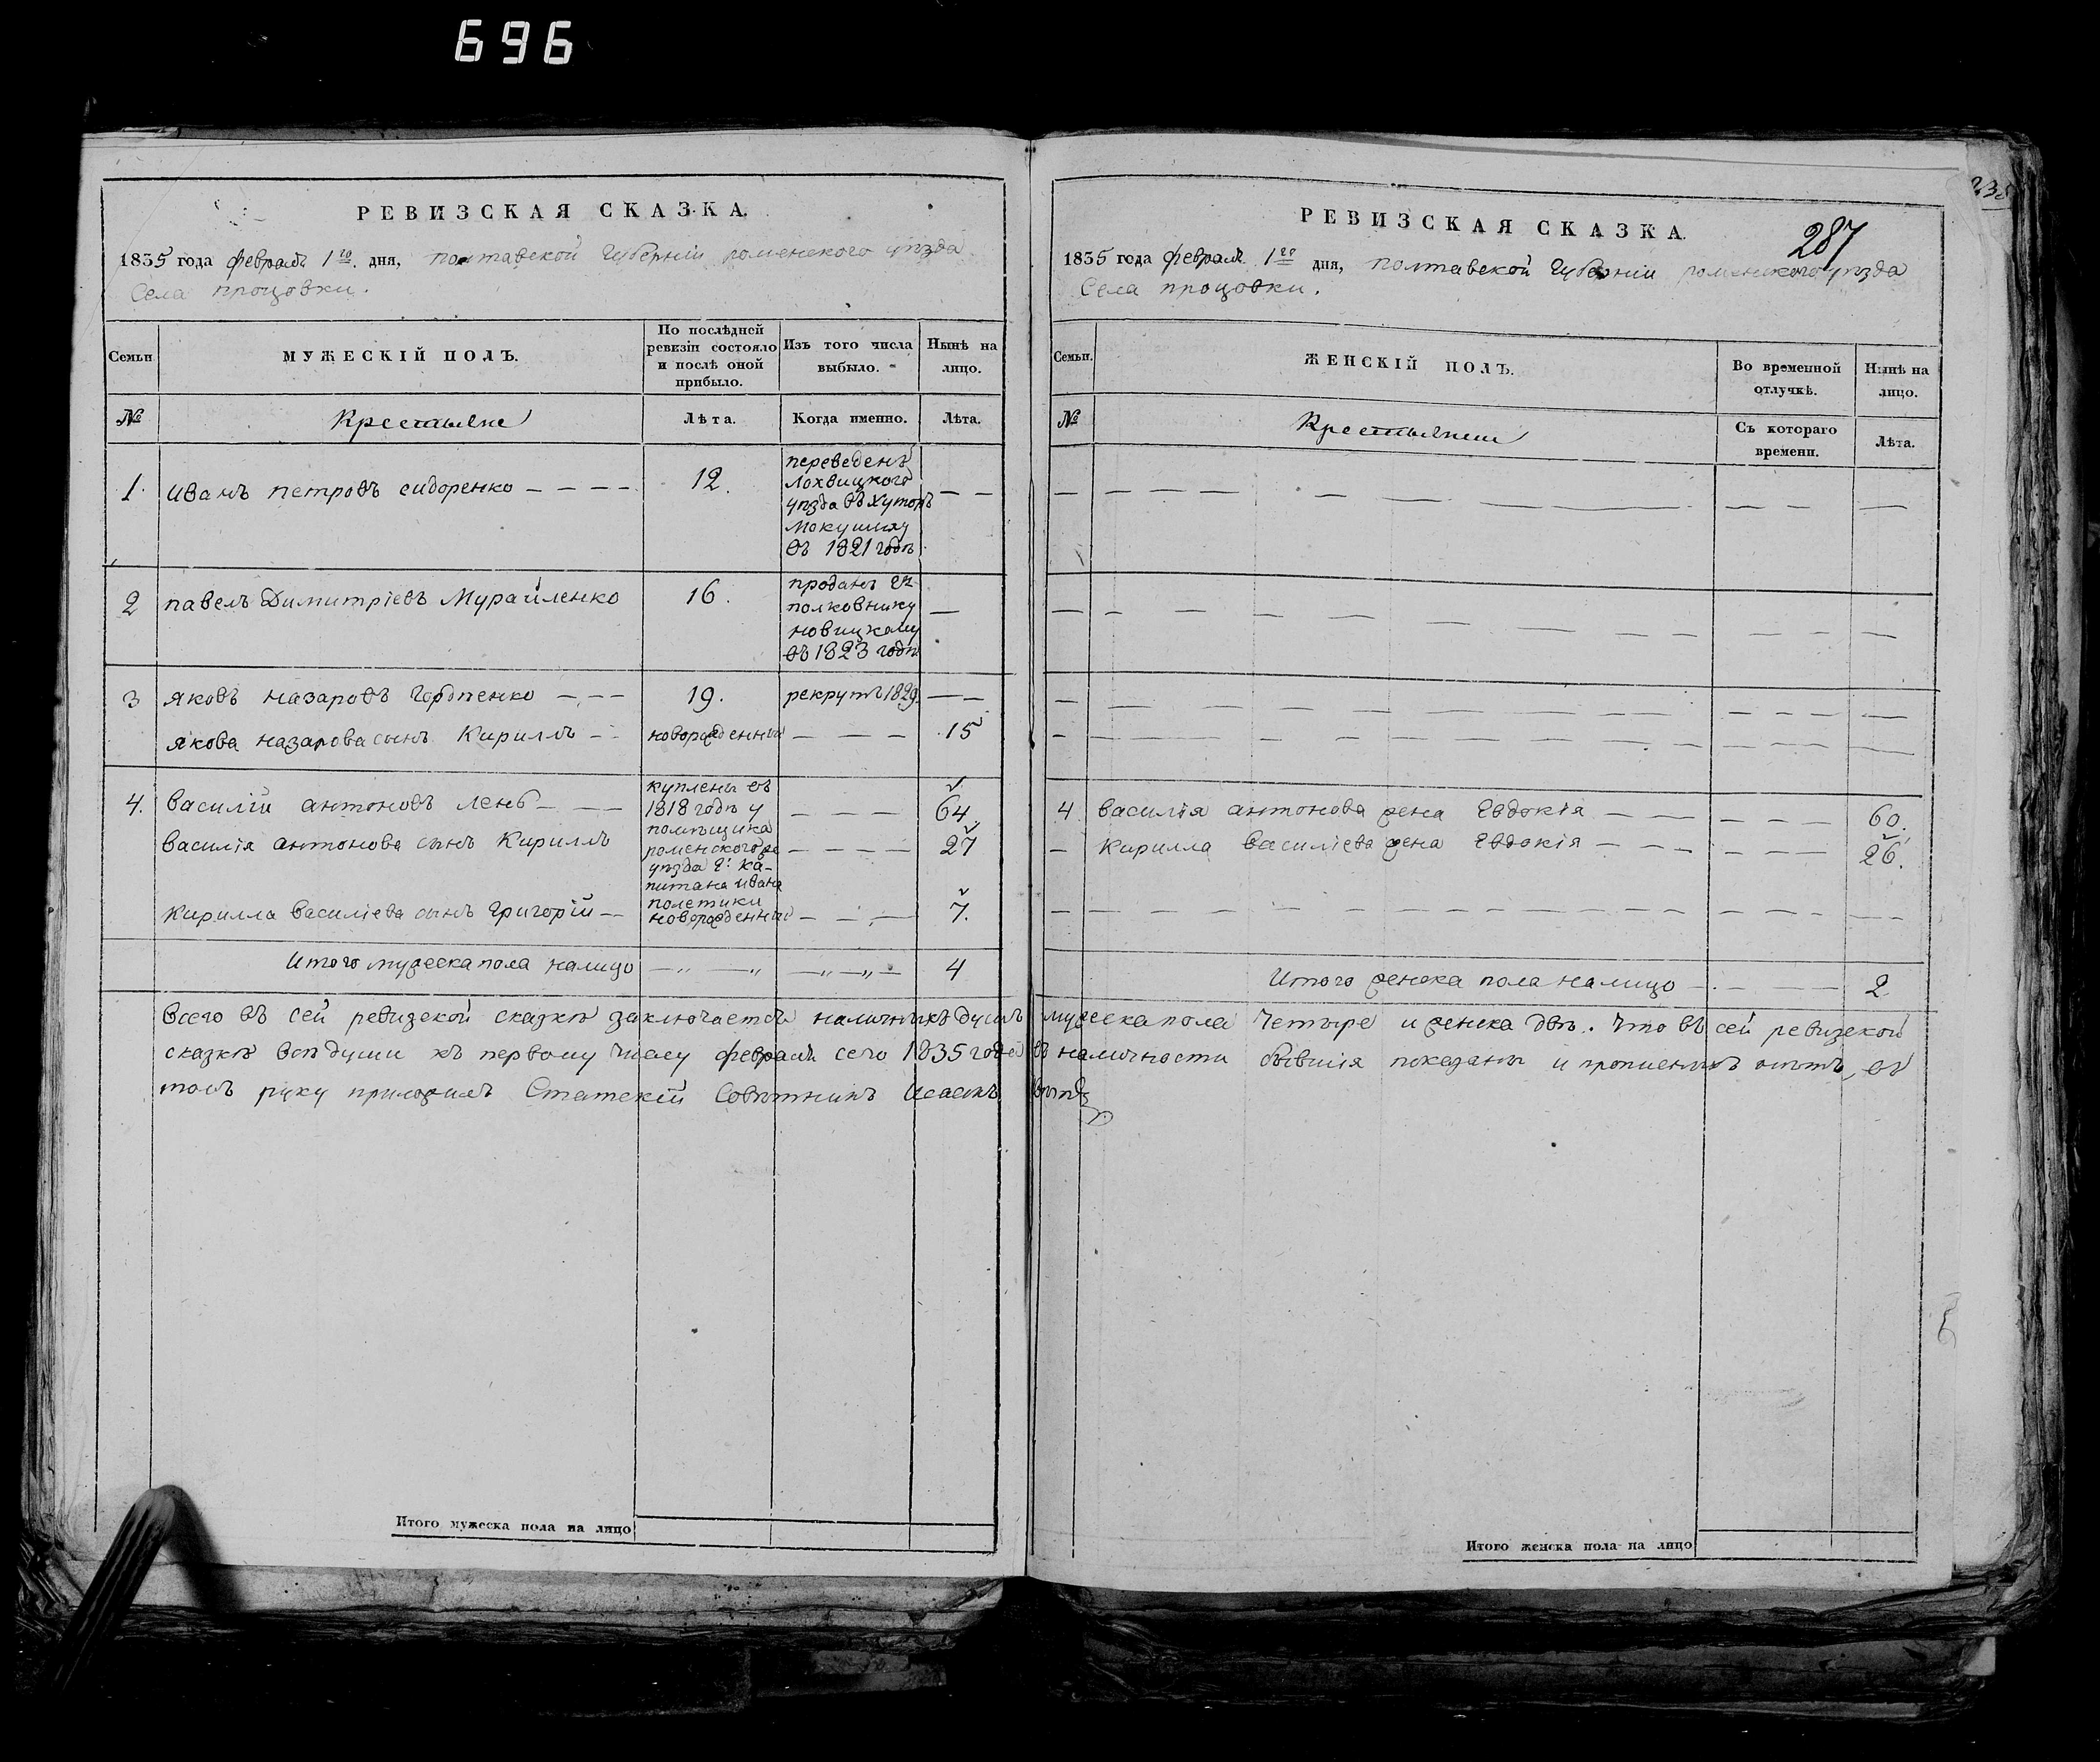 696
РЕВИЗСКАЯ СКАЗКА.
1835 года февраля 1го. дня, полтавской губерніи роменского уѣзда
Села процовки.
Семьи
МУЖЕСКІЙ ПОЛЪ.
По послѣдней ревизіи состояло и послѣ оной прибыло.
Изъ того числа выбыло.
Нынѣ на лицо.
№
Крестьяне
Лѣта.
Когда именно.
Лѣта.
1. иванъ петровъ сидоренко — — — — 12. — —
переведенъ
Лохвицкого
уѣзда въ хуторъ
въ 1821 годѣ.
2 павелъ Димитріевъ Мурайленко 16. —
проданъ гн
полковнику
новицкому
въ 1823 годѣ.
3 яковъ назаровъ — — — 19. рекрутъ 1829. — —
якова назарова сынъ Кирилъ — — новорожденный — — — 15
4. василій антоновъ лень — — — — — — 64.
василія антонова сынъ Кириллъ — — — — 27
куплены въ
1818 годѣ у
помѣщика
роменского
уѣзда г: ка-
питана ивана
полетики
кирилла василіева сынъ григорій — новорожденный — — — 7.
Итого мужеска пола налицо — „ — „ — „ — „ — 4
РЕВИЗСКАЯ СКАЗКА.
287
1835 года февраля 1го дня, полтавской губерніи роменского уѣзда
Села процовки.
Семьи.
ЖЕНСКІЙ ПОЛЪ.
Во временной отлучкѣ.
Нынѣ на лицо.
№
Съ котораго времени.
Лѣта.
4 василія антонова жена Евдокія — — — — — 60.
— Кирилла василіева жена Евдокія — — — — — — 26.
Итого женска пола налицо — . — — — 2
Всего въ сей ревизской сказкѣ заключается наличныхъ душъ мужеска пола четыре и женска двѣ. что въ сей ревизской
сказкѣ всѣ души къ первому числу февраля сего 1835 года въ наличности бывшія показаны и прописныхъ нѣтъ, въ
томъ руку приложилъ Статскій Совѣтникъ
Итого мужеска пола на лицо
Итого женска пола на лицо